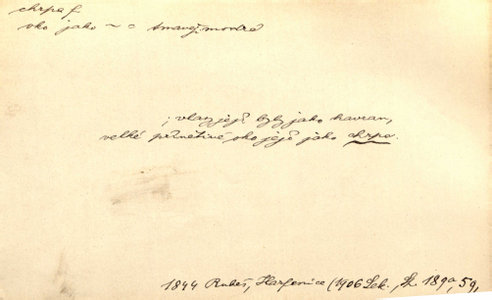 chrpa f.
oko jako ~ = tmavě modré
; vlasy její byly jako havran,
velké přívětivé oko její jako chrpa.
1844 Rubeš, Harfenice (1906 Lek. 189a, 59,